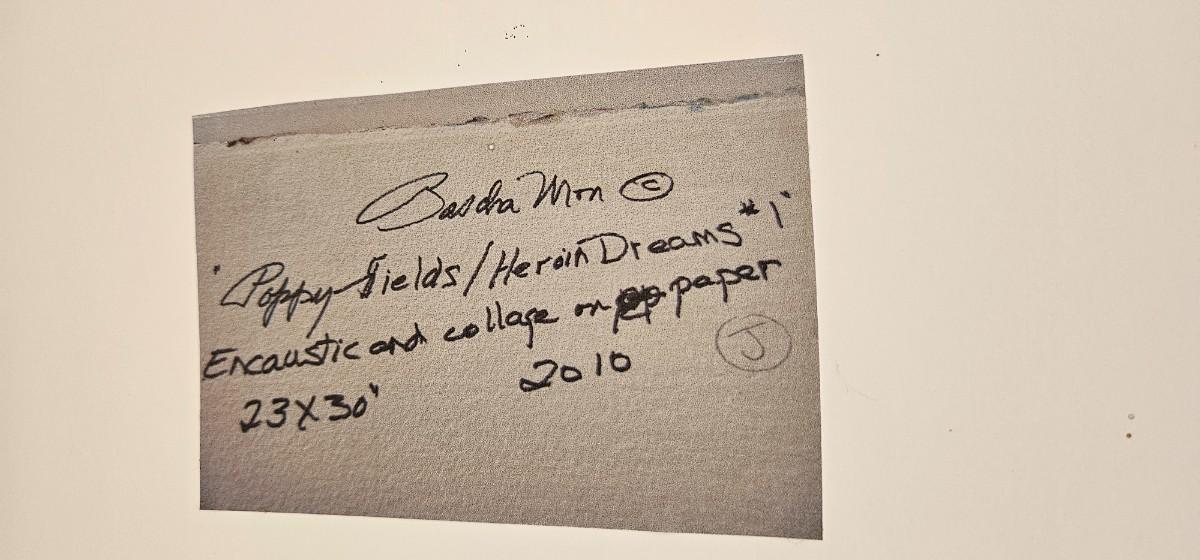 Bascha Mon ©
"Poppy Fields/Heroin Dreams #1"
Encaustic and collage on paper
J
23X30"
2010